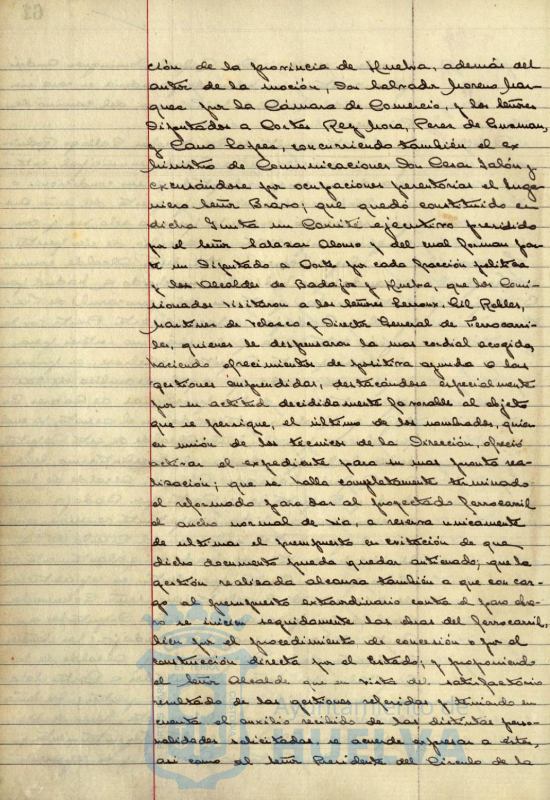 ción de la provincia de Huelva, además del
autor de la moción, Don Salvador Moreno Mar-
quez por la Cámara de Comercio, y los Señores
Diputados a Cortes Rey Mora, Perez de Guzman,
y Cano Lopez, concurriendo también el ex
Ministro de Comunicaciones Don Cesar Jalón y
excusándose por ocupaciones perentorias el Inge-
niero Señor Bravo; que quedó constituido en
dicha Junta un Comité ejecutivo presidido
por el Señor Salazar Alonso y del cual forman par-
te un Diputado a Cortes por cada fracción política
y los Alcaldes de Badajoz y Huelva, que los Comi-
sionados visitaron a los Señores Lerroux, Gil Robles,
Martinez de Velasco y Director General de Ferrocarri-
les, quienes le dispensaron la mas cordial acogida,
haciendo ofrecimientos de positiva ayuda a las
gestiones emprendidas, destacándose especialmente
por su actitud decididamente favorable al objeto
que se persigue, el último de los nombrados, quien
en unión de los técnicos de la Dirección, ofreció
activar el expediente para su mas pronta rea-
lización; que se halla completamente terminado
el reformado para dar al proyectado ferrocarril
el ancho normal de via, a reserva unicamente
de ultimar el presupuesto en evitación de que
dicho documento pueda quedar anticuado; que la
gestión realizada alcanza también a que con car-
go al presupuesto extraordinario contra el paro obre-
ro se inicien seguidamente las obras del ferrocarril,
bien por el procedimiento de concesión o por el
construcción directa por el Estado; y proponiendo
el Señor Alcalde que en vista del satisfactorio
resultado de las gestiones referidas y teniendo en
cuenta el auxilio recibido de las distintas perso-
nalidades solicitadas se acuerde expresar a éstas,
así como al Señor Presidente del Círculo de la
Ayuntamiento de
HUELVA
61